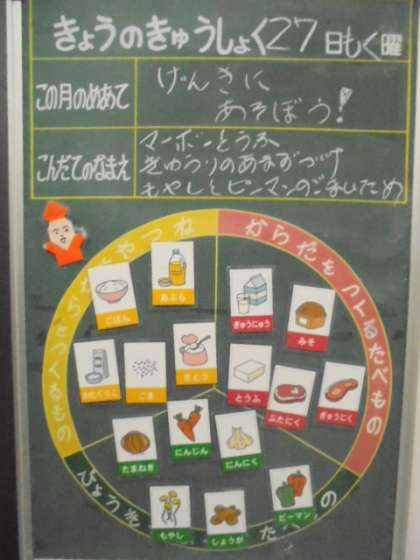 きょうのきゅうしょく27日もく曜
この月のめあて
げんきに
あそぼう!
こんだてのなまえ
マーボーとうふ
きゅうりのあまずづけ
もやしとピーマンのごまいため
からだをつくるたべもの
ごはん
あぶら
ぎゅうにゅう
みそ
ごま
さとう
とうふ
ぶたにく
ぎゅうにく
たまねぎ
にんじん
にんにく
もやし
しょうが
ピーマン